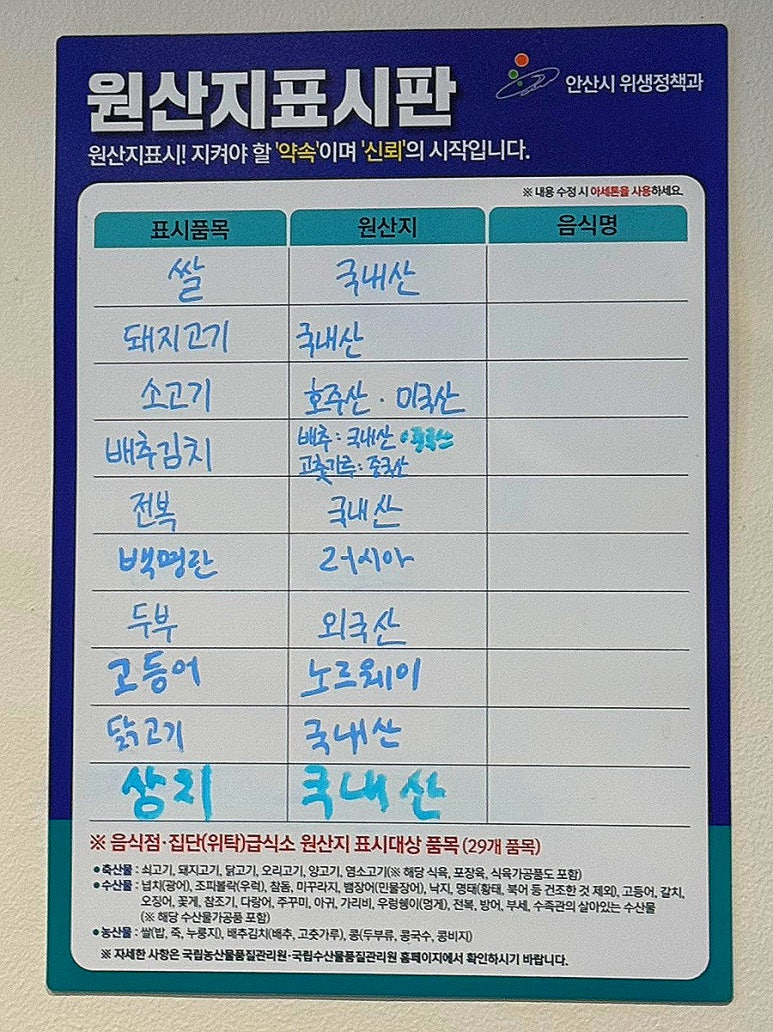 원산지표시판
안산시 위생정책과
원산지표시! 지켜야 할 '약속'이며 '신뢰'의 시작입니다.
※ 내용 수정 시 아세톤을 사용하세요.
표시품목 원산지 음식명
쌀 국내산
돼지고기 국내산
소고기 호주산 · 미국산
배추김치 배추 : 국내산 · 중국산
고춧가루 : 중국산
전복 국내산
백명란 러시아
두부 외국산
고등어 노르웨이
닭고기 국내산
상치 국내산
※ 음식점·집단(위탁)급식소 원산지 표시대상 품목 (29개 품목)
● 축산물 : 쇠고기, 돼지고기, 닭고기, 오리고기, 양고기, 염소고기(※ 해당 식육, 포장육, 식육가공품도 포함)
● 수산물 : 넙치(광어), 조피볼락(우럭), 참돔, 미꾸라지, 뱀장어(민물장어), 낙지, 명태(황태, 북어 등 건조한 것 제외), 고등어, 갈치,
오징어, 꽃게, 참조기, 다랑어, 주꾸미, 아귀, 가리비, 우렁쉥이(멍게), 전복, 방어, 부세, 수족관의 살아있는 수산물
(※ 해당 수산물가공품 포함)
● 농산물 : 쌀(밥, 죽, 누룽지), 배추김치(배추, 고춧가루), 콩(두부류, 콩국수, 콩비지)
※ 자세한 사항은 국립농산물품질관리원·국립수산물품질관리원 홈페이지에서 확인하시기 바랍니다.